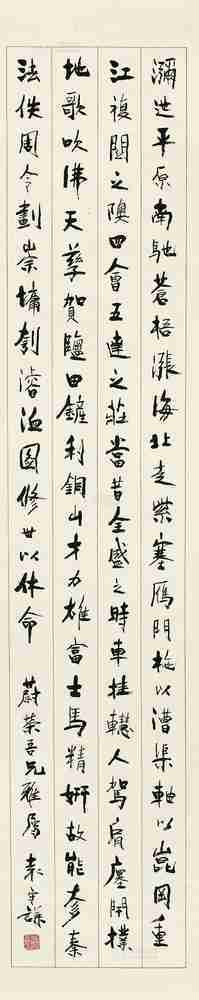 瀰迆平原南馳蒼梧漲海北走紫塞雁門柂以漕渠軸以崑岡重
江複關之隩四會五達之莊當昔全盛之時車挂轊人駕肩廛閈撲
地歌吹沸天孳貨鹽田鏟利銅山才力雄富士馬精妍故能奓秦
法佚周令劃崇墉刳濬洫圖修世以休命
蔚榮吾兄雅屬 袁守謙